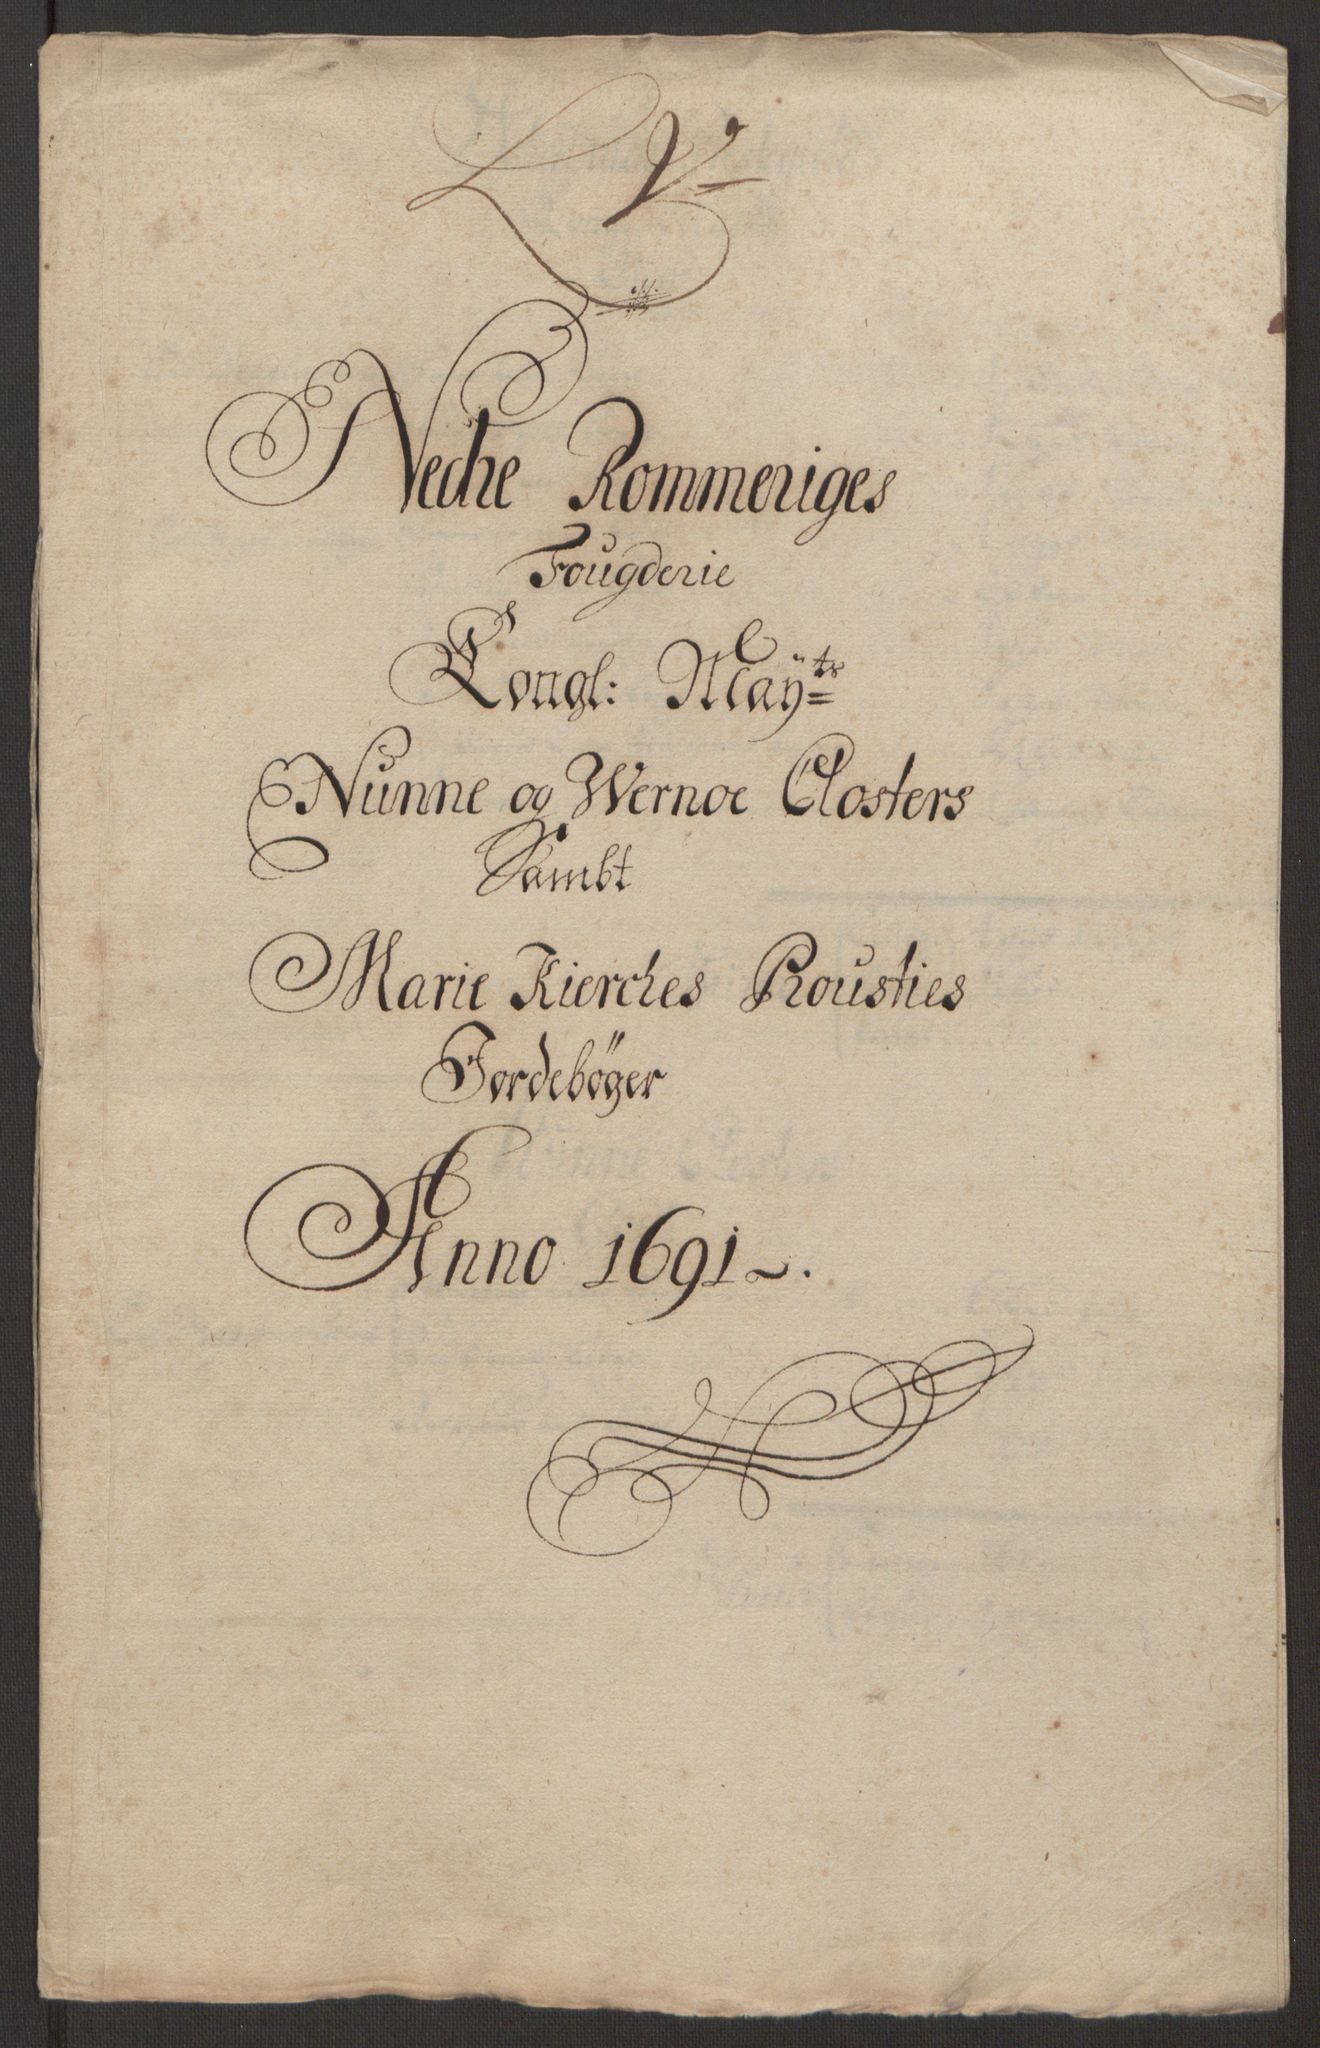 Nedre Rommeriges
Fougderie
Kongl: Mayts
Nunne og Wernoe Closters
Sambt
Marie Kierckes Prousties
Jordebøger
Anno 1691